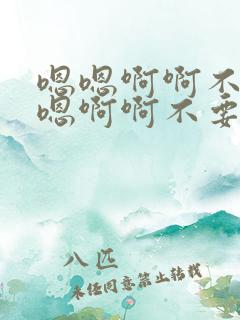 嗯嗯啊啊不
嗯啊啊不要
八匹
未经同意禁止转载